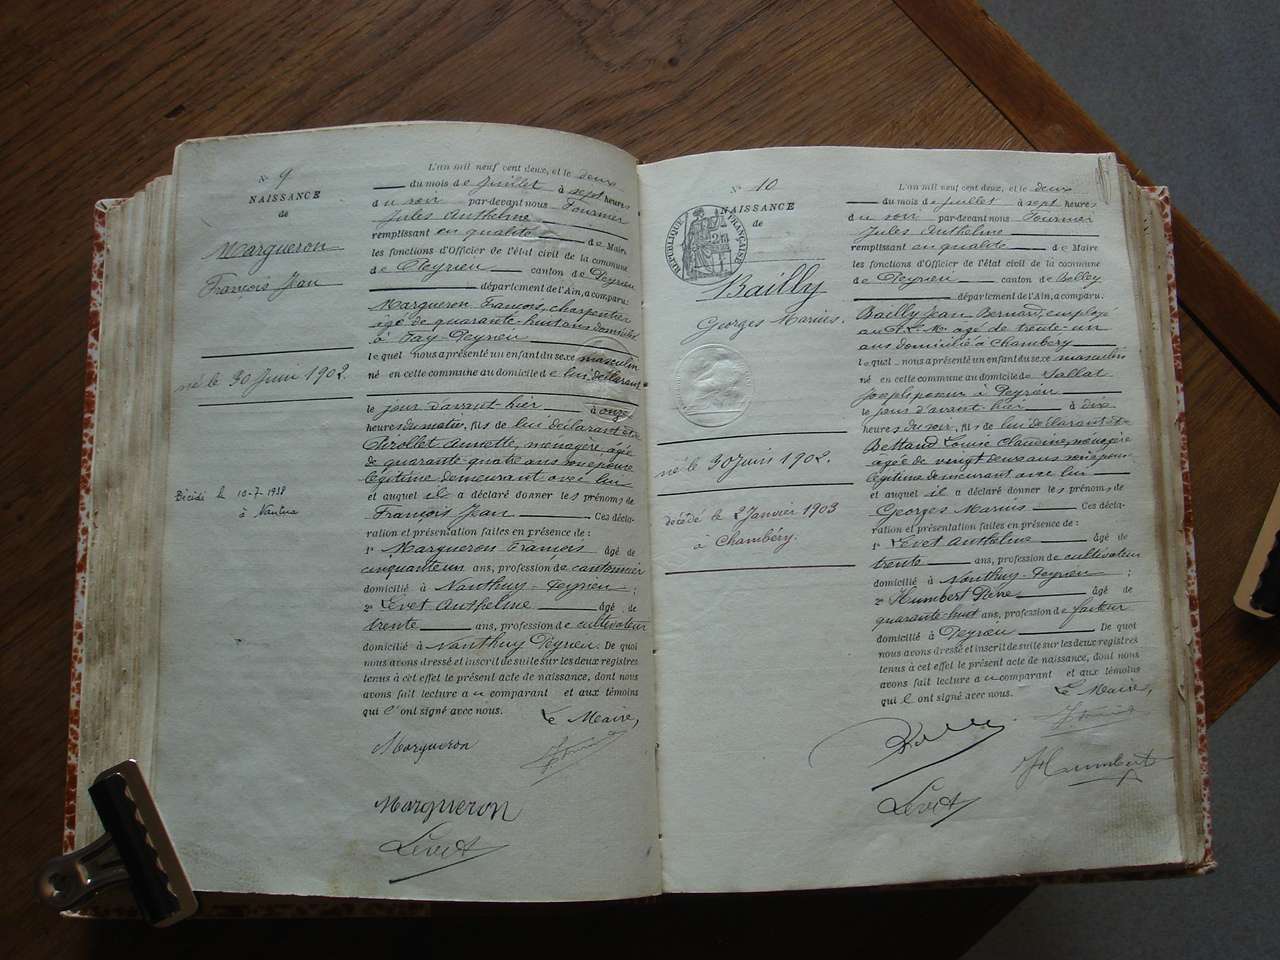 N° 9
NAISSANCE
de
Margueron
François Jean
né le 30 Juin 1902.
Décédé le 10-7-1938
à Nantua
L'an mil neuf cent deux, et le deux
du mois de Juillet à sept heures
du soir par-devant nous Fournier
Jules Anthelme
remplissant en qualité de Maire
les fonctions d'Officier de l'état civil de la commune
de Peyrieu canton de Peyrieu
département de l'Ain, a comparu:
Margueron François, charpentier
âgé de quarante-huit ans domicilié
à Fay-Peyrieu
lequel nous a présenté un enfant du sexe masculin
né en cette commune au domicile de lui déclarant
le jour d'avant-hier à onze
heures du matin, fils de lui déclarant et de
Pirollet Annette, ménagère, âgée
de quarante-quatre ans son épouse
légitime demeurant avec lui
et auquel il a déclaré donner les prénoms de
François Jean Ces décla-
ration et présentation faites en présence de:
1° Margueron François âgé de
cinquante un ans, profession de cantonnier
domicilié à Nanthuy-Peyrieu ;
2° Levet Anthelme âgé de
trente ans, profession de cultivateur
domicilié à Nanthuy Peyrieu. De quoi
nous avons dressé et inscrit de suite sur les deux registres
tenus à cet effet le présent acte de naissance, dont nous
avons fait lecture au comparant et aux témoins
qui l'ont signé avec nous. Le Maire,
Margueron
Margueron
Levet
N° 10
NAISSANCE
de
RÉPUBLIQUE FRANÇAISE
Bailly
Georges Marius.
né le 30 Juin 1902.
décédé le 2 Janvier 1903
à Chambéry.
L'an mil neuf cent deux, et le deux
du mois de Juillet à sept heures
du soir par-devant nous Fournier
Jules Anthelme
remplissant en qualité de Maire
les fonctions d'Officier de l'état civil de la commune
de Peyrieu canton de Belley
département de l'Ain, a comparu:
Bailly Jean Bernard, employé
au P. L. M. âgé de trente-un
ans domicilié à Chambéry
lequel nous a présenté un enfant du sexe masculin
né en cette commune au domicile de Vallat
Joseph à Peyrieu
le jour d'avant-hier à dix
heures du soir, fils de lui déclarant et de
Bettaud Louise Claudine, ménagère
âgée de vingt deux ans son épouse
légitime demeurant avec lui
et auquel il a déclaré donner les prénoms de
Georges Marius Ces décla-
ration et présentation faites en présence de:
1° Levet Anthelme âgé de
trente ans, profession de cultivateur
domicilié à Nanthuy-Peyrieu ;
2° Humbert Pierre âgé de
quarante-huit ans, profession de facteur
domicilié à Peyrieu De quoi
nous avons dressé et inscrit de suite sur les deux registres
tenus à cet effet le présent acte de naissance, dont nous
avons fait lecture au comparant et aux témoins
qui l'ont signé avec nous. Le Maire,
Humbert
Levet